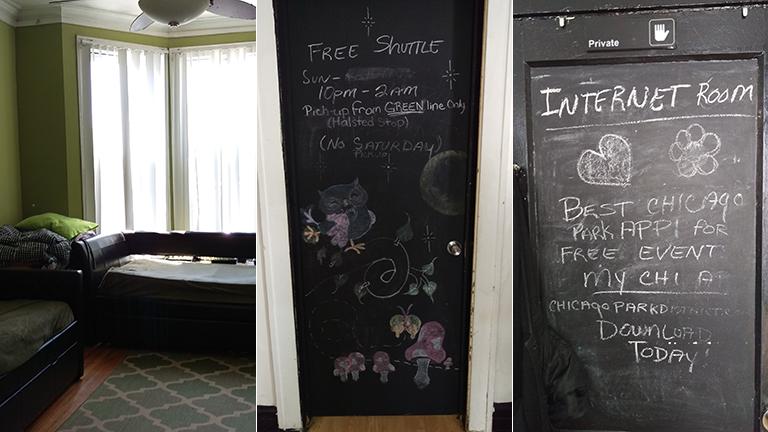 FREE SHUTTLE
SUN-
10PM - 2AM
Pick-up from GREEN line Only
(Halsted Stop)
(NO SATURDAY)
PICKUP
Private
INTERNET ROOM
BEST CHICAGO
PARK APP! FOR
FREE EVENT
MY CHI AP
CHICAGOPARKDISTRICT
DOWNLOAD
TODAY!